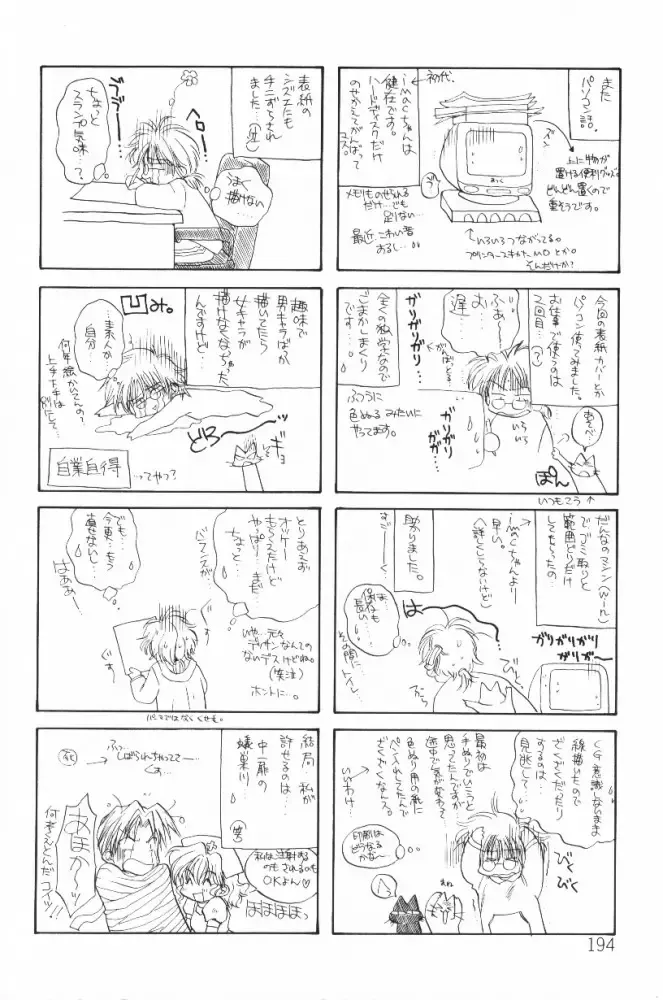 また
パソコン話。
初代。
imacちゃんは
健在です。
ハードディスクだけ
のせかえてがんばって
コス。
上に物が
置ける便利グッズ。
どんどん置くので
重そうです。
メモリものせれる
だけ…でも
足りない…
最近こわい音
するし…
いろいろつながってる。
プリンタースキャナMOとか。
そんだけか?
今回の表紙カバーとか
パソコン使ってみました。
お仕事で使うのは
2回目…
ふぁー
お…
遅…
ガリガリガリ…
がんばってる…
全くの独学なので
ごまかしまくり
です。
ふつうに
色ぬるみたいに
やってます。
ガリガリ
ガガガ…
いろいろ
あそべ…
ぽん
いつもこう
だんなのマシン(Win)
でゴミ取りと
範囲どりだけ
してもらったの
imacちゃんより
早い。
(詳しくしらないけど)
助かりました。
すごーく
保存も
長い…
その間にトイレ
は
ガリガリガリガリ
ガリガー
CG意識しないまま
線描いたので
ざくざくだったり
するのは…
見逃して
最初は
手ぬりでいこうと
思ってたんですが
途中で気が変わって
色ぬり用の紙に
ペン入れしてたんで
ざくざくなんス。
いいわけ…
印刷は
どうなるかな〜
びくびく
表紙の
シズエにも
手こずらされ
ました…
ちょっと
スランプ気味…?
ヘロー
うまく
描けない
趣味で
男キャラばか
描いてたら
女キャラが
描けなくなっちゃった
んですけど…
凹み。
…素人か
自分…
何年絵かくんの?
上手下手は
別にして
どろ〜〜ッ
ギョ
自業自得
ってやつ?
とりあえず
オッケー
もらえたけど
やっぱり…まだ
ちょっと…
バランスが
でも…
今更…もう
直せないし…
はぁぁー
ぐす
ぐす
いや…元々
デッサンなんての
ないデスけどね。
(笑泣)
ホントに…。
パースではなくくせも。
結局…私が
許せるのは
中一扉の
蟻巣川…
(笑)
ふっ…
しばられちゃってて…
ぐす…
(死)
私は注射するのもされるのも
OKよん♡
ほほほほっ
あほか〜ッ
何考えとんだコイツ!!
194